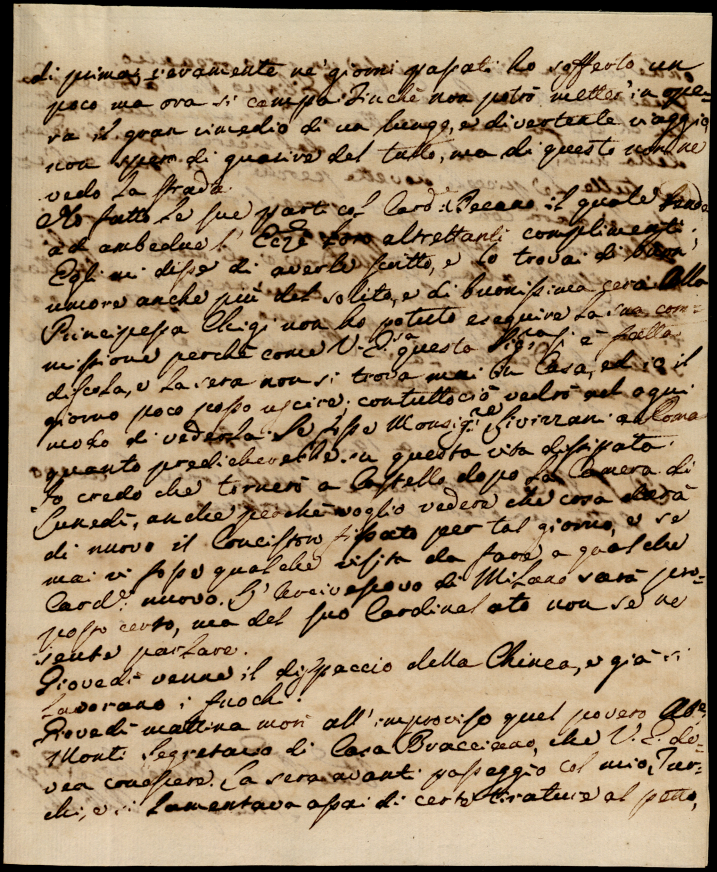 di prima, veramente ne' giorni passati ho sofferto un
poco ma ora si campa. Finchè non potrò metter in ope-
ra il gran rimedio di un lungo, e divertente viaggio
non spero di guarire del tutto, ma di questo non ne
vedo la strada.
Ho fatto le sue parti col Card: Pecano il quale rende
ad ambedue l' Ecc:e Loro altrettanti complimenti.
Egli mi disse di averle scritto, e lo trovai di buon'
umore anche più del solito, e di buonissima cera. Alla
Principessa Chigi non ho potuto eseguire la sua com-
missione perchè come V. E. questa Sig:ra si è fatta
discola, e la sera non si trova mai in Casa, ed io il
giorno poco posso uscire; contuttociò vedrò nel
modo di vederla. Se fosse Monsig:re a Roma
quanto predicherebbe su questa vita dissipata.
Io credo che tornerò a Castello dopo la Camera di
Lunedì, anche perchè voglio vedere che cosa darà
di nuovo il Concistoro fissato per tal giorno, e se
mai vi fosse qualche visita da fare a qualche
Card:e nuovo. L' Arcivescovo di Milano sarà pro-
posto certo, ma del suo Cardinalato non se ne
sente parlare.
Giovedì venne il dispaccio della Chinea, e già si
lavorano i fuochi.
Giovedì mattina morì all' improviso quel povero Ab:e
Monti Segretario di Casa Bracciano, che V. E. do-
vea conoscere. La sera avanti passeggiò col mio Tur-
chi, e si lamentava assai di certe tirature al petto,